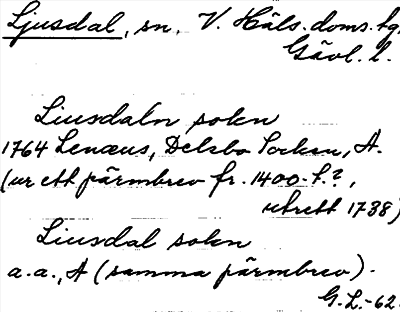 Ljusdal, sn, V. Häls. doms. tg,
Gävl. l.
Liusdaln sokn
1764 Lenæus, Delsbo Socken, A.
(ur ett pärmbrev fr. 1400-t.?,
utrett 1738)
Liusdal sokn
a.a., A (samma pärmbrev).
G.L.-62.